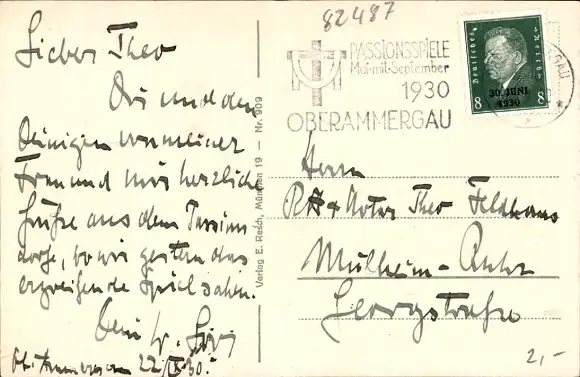 82487
Lieber Theo
Dir und den
Deinigen von meiner
Frau und mir herzliche
Grüße aus dem Passions
dorfe, wo wir gestern das
ergreifende Spiel sahen.
Dein
22/IX 30.
Verlag E. Resch, München 19 – Nr. 909
PASSIONSSPIELE
Mai mit September
1930
OBERAMMERGAU
Deutsches Reich
30. JUNI
1930
8 8
Herrn
Notar Theo Feldhaus
Mülheim-Ruhr
Georgstraße
2,-